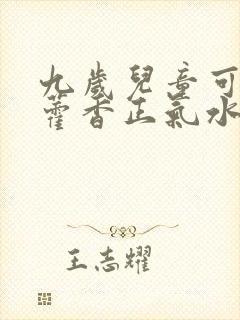 九歲兒童可
藿香正氣水
王志耀